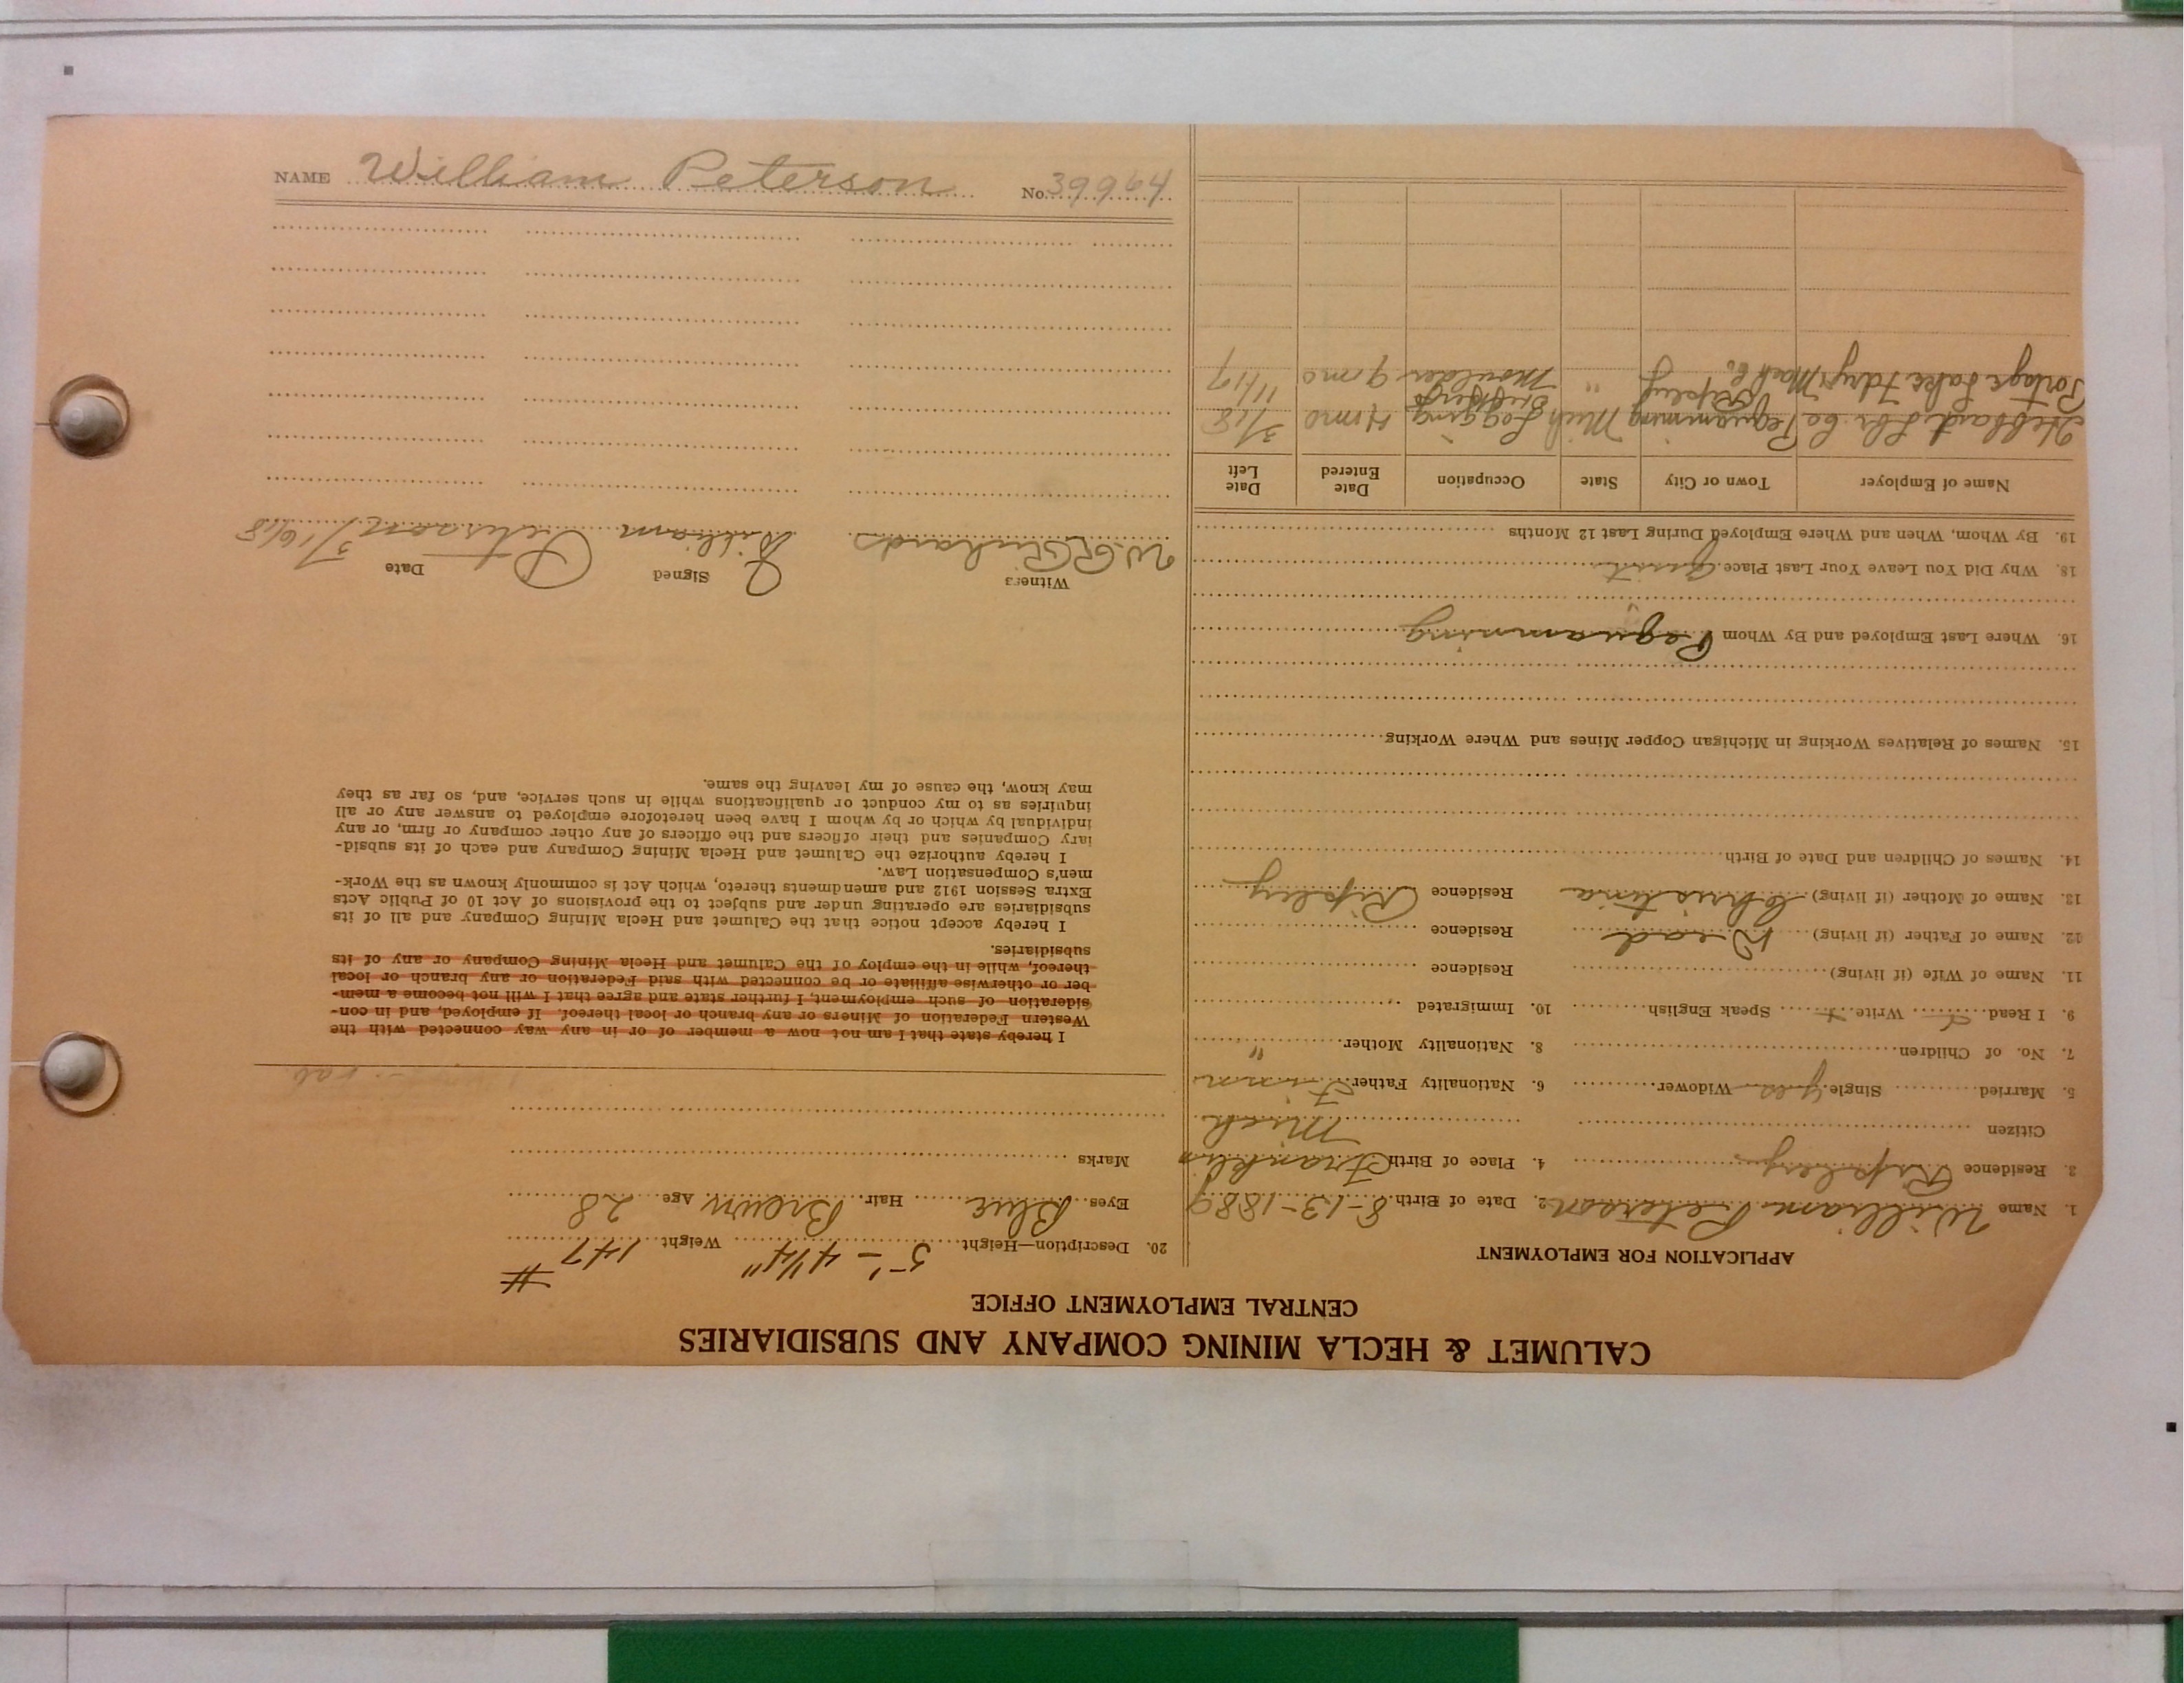 CALUMET & HECLA MINING COMPANY AND SUBSIDIARIES
CENTRAL EMPLOYMENT OFFICE
APPLICATION FOR EMPLOYMENT
1. Name William Peterson 2. Date of Birth 8-13-1889
3. Residence Ripley 4. Place of Birth Franklin
Citizen Mich
5. Married Single yes Widower 6. Nationality Father Finn
7. No. of Children 8. Nationality Mother "
9. I Read Write Speak English 10. Immigrated
11. Name of Wife (if living) Residence
12. Name of Father (if living) Dead Residence
13. Name of Mother (if living) Christina Residence Ripley
14. Names of Children and Date of Birth
15. Names of Relatives Working in Michigan Copper Mines and Where Working
16. Where Last Employed and By Whom Pequamming
18. Why Did You Leave Your Last Place Quit
19. By Whom, When and Where Employed During Last 12 Months
Name of Employer Town or City State Occupation Date Entered Date Left
Hebbard Lbr Co Pequamming Mich Logging 4 mo 3/18
Portage Lake Fdry & Mach Co. Ripley " Moulder 9 mo 11/17
20. Description—Height 5'-4 1/4" Weight 147 #
Eyes Blue Hair Brown Age 28
Marks
I hereby state that I am not now a member of or in any way connected with the
Western Federation of Miners or any branch or local thereof. If employed, and in con-
sideration of such employment, I further state and agree that I will not become a mem-
ber or otherwise affiliate or be connected with said Federation or any branch or local
thereof, while in the employ of the Calumet and Hecla Mining Company or any of its
subsidiaries.
I hereby accept notice that the Calumet and Hecla Mining Company and all of its
subsidiaries are operating under and subject to the provisions of Act 10 of Public Acts
Extra Session 1912 and amendments thereto, which Act is commonly known as the Work-
men's Compensation Law.
I hereby authorize the Calumet and Hecla Mining Company and each of its subsid-
iary Companies and their officers and the officers of any other company or firm, or any
individual by which or by whom I have been heretofore employed to answer any or all
inquiries as to my conduct or qualifications while in such service, and, so far as they
may know, the cause of my leaving the same.
Witness Signed Date
W.R. Richards William Peterson 3/16/18
NAME William Peterson No. 39964